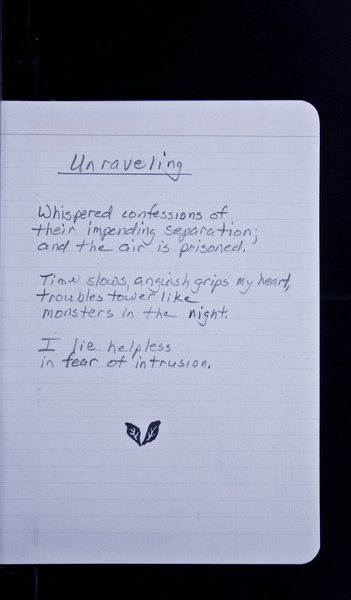 Unraveling
Whispered confessions of
their impending separation;
and the air is poisoned.
Time slows, anguish grips my heart,
troubles tower like
monsters in the night.
I lie helpless
in fear of intrusion.